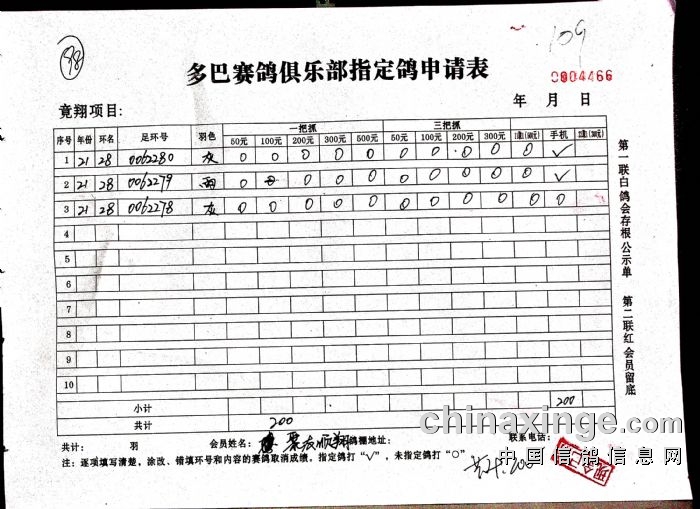 98
109
多巴赛鸽俱乐部指定鸽申请表
0004466
竟翔项目: 年 月 日
序号 年份 环名 足环号 羽色 一把抓 三把抓 手机
50元 100元 200元 300元 500元 50元 100元 200元 300元
1 21 28 0062280 灰 0 0 0 0 0 0 0 0 0 0 ✓
2 21 28 0062279 雨 0 0 0 0 0 0 0 0 0 0 ✓
3 21 28 0062278 灰 0 0 0 0 0 0 0 0 0 0 0
4
5
6
7
8
9
10
小计 200
共计 200
共计: 羽 会员姓名: 鸽棚地址: 联系电话:
注: 逐项填写清楚, 涂改、错填环号和内容的赛鸽取消成绩, 指定鸽打“✓”, 未指定鸽打“○”
共计: 200
现金已
第一联白鸽会存根公示单 第二联红会员留底
chinaxinge.com
中国信鸽信息网